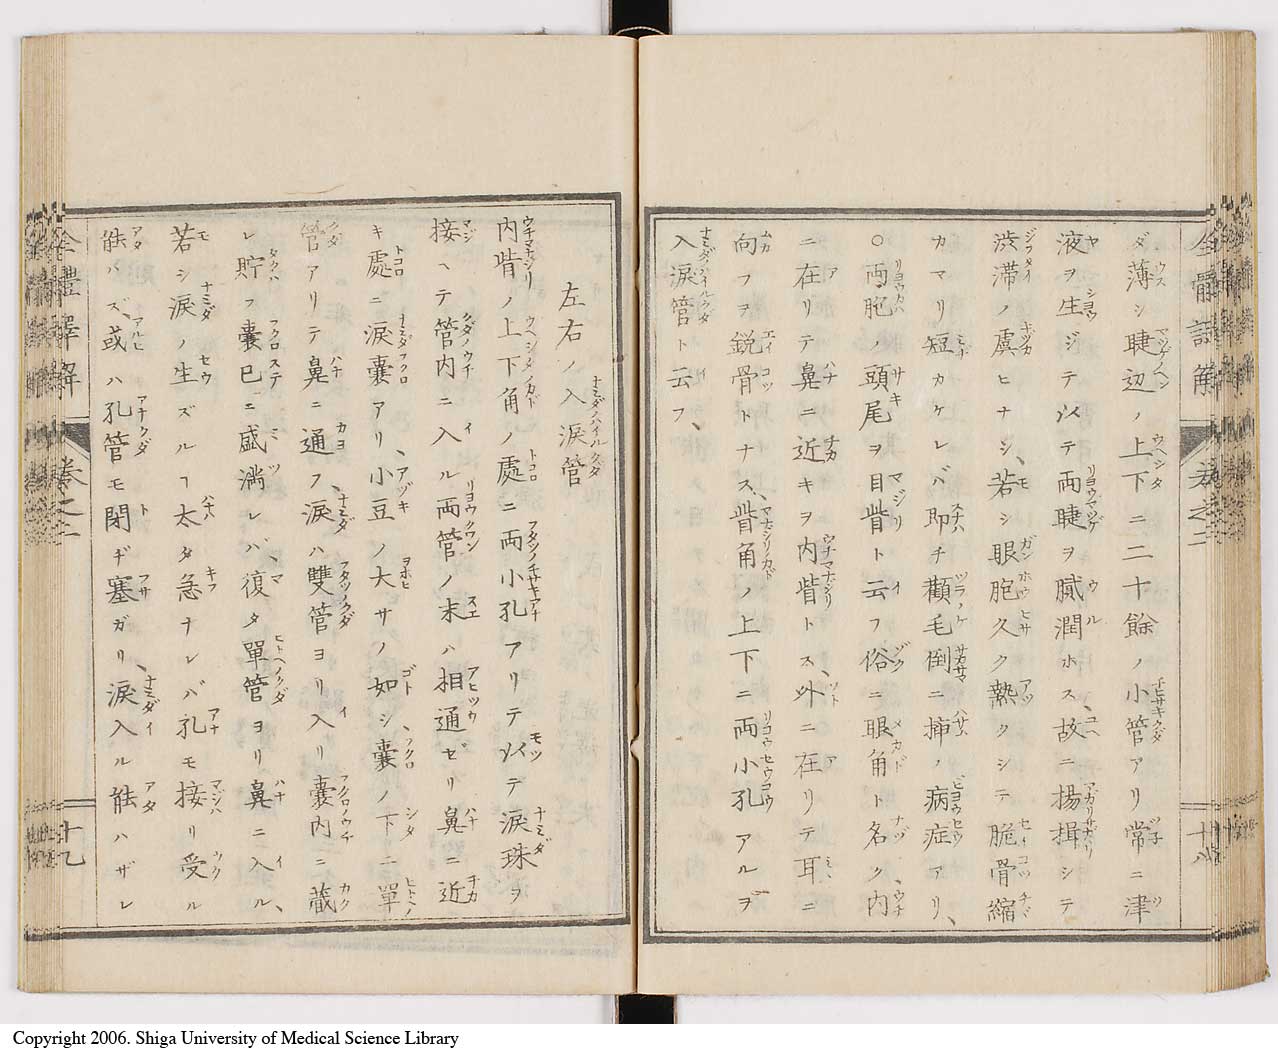 ダ薄シ睫辺ノ上下ニ二十餘ノ小管アリ常ニ津
液ヲ生ジテ以テ両睫ヲ膩潤ホス故ニ揚揖シテ
渋滞ノ虞ヒナシ、若シ眼胞久ク熱クシテ脆骨縮
カマリ短カケレバ即チ顴毛倒ニ挿ノ病症アリ、
○両胞ノ頭尾ヲ目眥ト云フ俗ニ眼角ト名ク内
ニ在リテ鼻ニ近キヲ内眥トス外ニ在リテ耳ニ
向フヲ鋭骨トナス、眥角ノ上下ニ両小孔アルヲ
入涙管ト云フ、
全體譯解
卷之二
十八
左右ノ入涙管
内眥ノ上下角ノ處ニ両小孔アリテ以テ涙珠ヲ
接ヘテ管内ニ入ル両管ノ末ハ相通ゼリ鼻ニ近
キ處ニ涙囊アリ、小豆ノ大サノ如シ、囊ノ下ニ單
管アリテ鼻ニ通フ、涙ハ雙管ヨリ入リ囊内ニ蔵
レ貯フ囊已ニ盛満レバ、復タ單管ヨリ鼻ニ入ル、
若シ涙ノ生ズルヿ太タ急ナレバ孔モ接リ受ル
能バズ、或ハ孔管モ閉ヂ塞ガリ、涙入ル能ハザレ
全體譯解
卷之二
十九
Copyright 2006. Shiga University of Medical Science Library